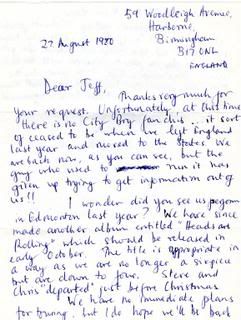 59 Woodleigh Avenue,
Harborne,
Birmingham
B17 0NL
ENGLAND
22 August 1980
Dear Jeff,
Thanks very much for
your request. Unfortunately, at this time
there is no City Boy fan club .. it sort
of ceased to be when we left England
last year and moved to the States. We
are back now, as you can see, but the
guy who used to run it has
given up trying to get information out of
us!!
I wonder did you see us perform
in Edmonton last year? We have since
made another album entitled "Heads are
Rolling" which should be released in
early October. The title is appropriate in
a way as we are no longer a sixpiece
but are down to four. Steve and
Chris "departed" just before Christmas.
We have no immediate plans
for touring, but I do hope we'll be back